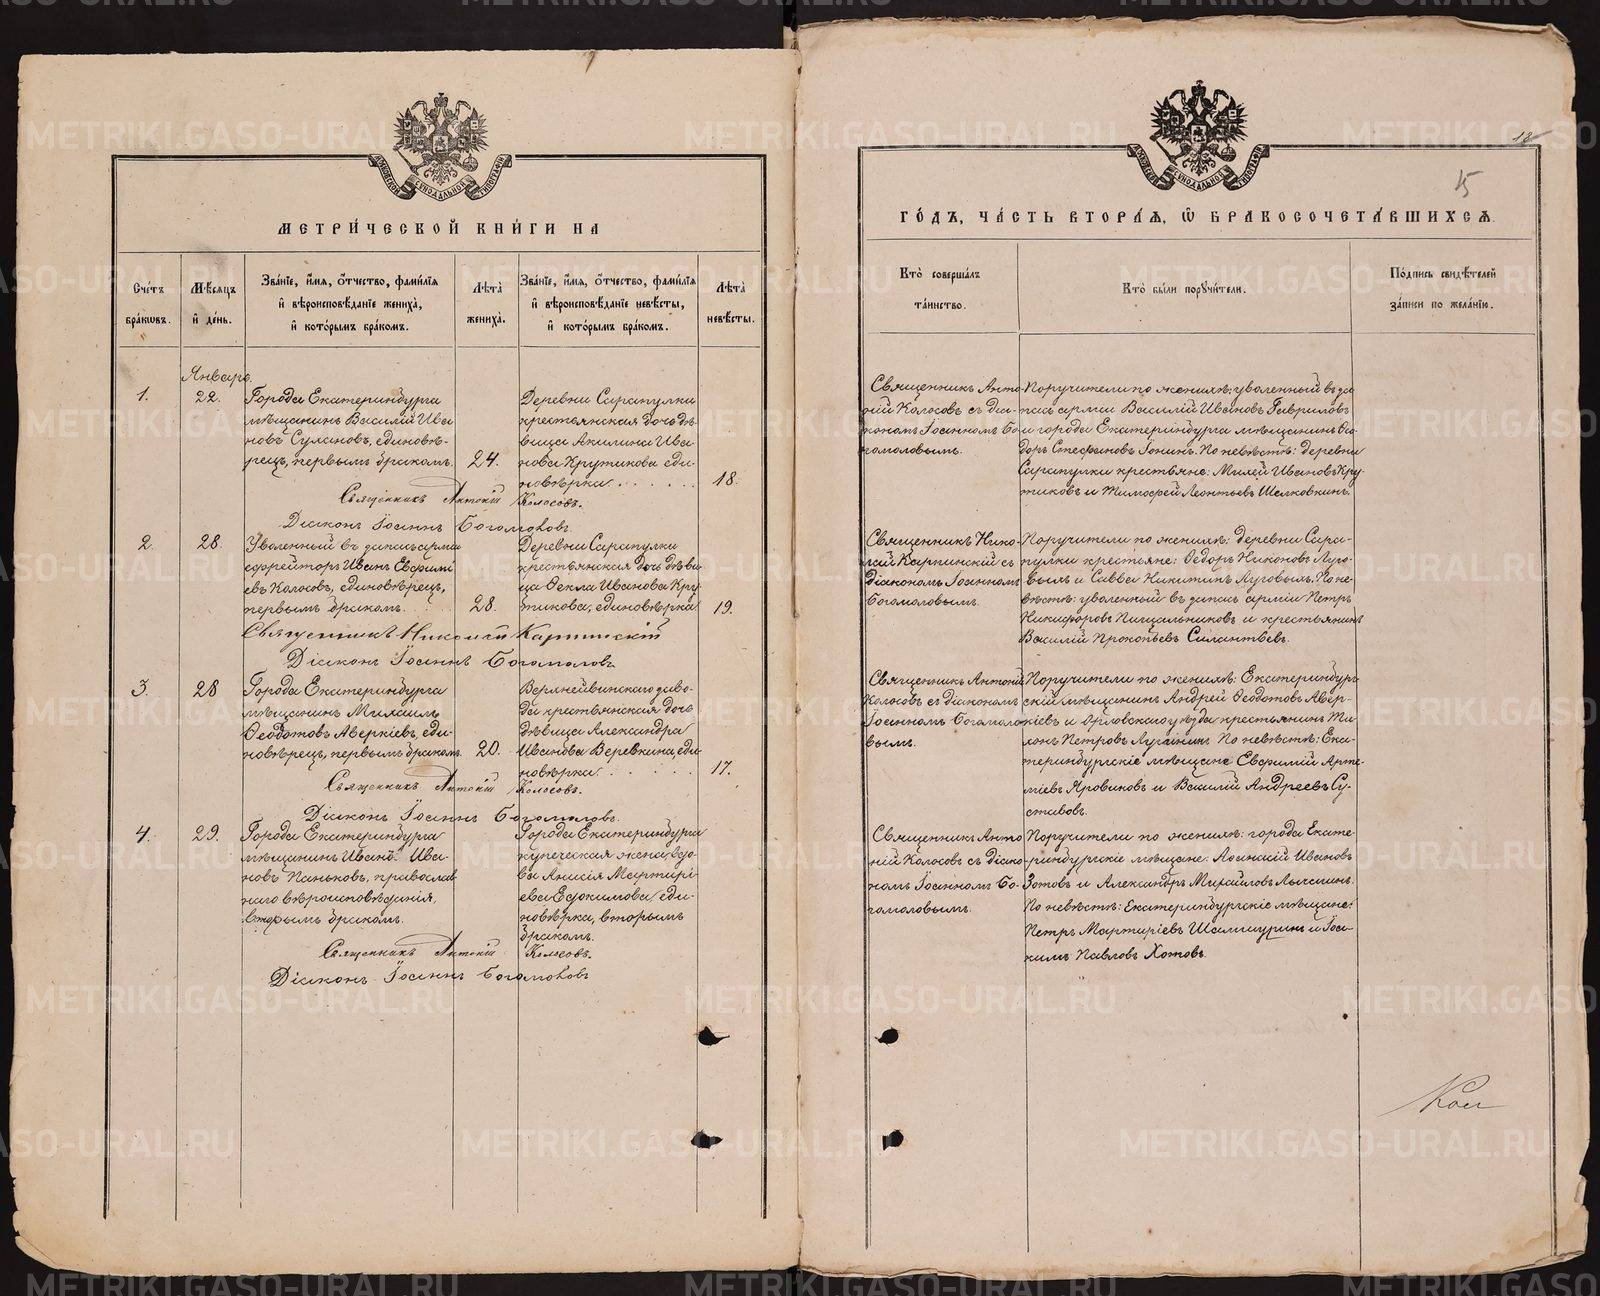 МЕТРИ́ЧЕСКОЙ КНИ́ГИ НА
Сче́тъ бра́кѡвъ.
Мѣ́сяцъ и҆ де́нь.
Зва́нїе, и҆́мя, о҆́тчество, фами́лїя и҆ вѣроисповѣ́данїе жениха̀, и҆ кото́рымъ бра́комъ.
Лѣ́та жениха̀.
Зва́нїе, и҆́мя, о҆́тчество, фами́лїя и҆ вѣроисповѣ́данїе невѣ́сты, и҆ кото́рымъ бра́комъ.
Лѣ́та невѣ́сты.
Январь.
1.
22.
Города Екатеринбурга
мѣщанинъ Василій Ива
новъ Сулановъ, единовѣ-
рецъ, первымъ бракомъ.
24.
Деревни Сарапулки
крестьянская дочь дѣ
вица Акилина Ива
нова Крутикова еди-
новѣрка
18.
Священникъ Антоній Колосовъ.
Діаконъ Іоаннъ Богомоловъ.
2.
28.
Уволенный въ запасъ арміи
ефрейторъ Иванъ Евфимі
евъ Колосовъ, единовѣрецъ,
первымъ бракомъ
28.
Деревни Сарапулки
крестьянская дочь дѣви
ца Ѳекла Иванова Кру
тикова, единовѣрка
19.
Священникъ Николай Карпинскій
Діаконъ Іоаннъ Богомоловъ
3.
28
Города Екатеринбурга
мѣщанинъ Михаилъ
Ѳеодотовъ Аверкіевъ, еди-
новѣрецъ, первымъ бракомъ.
20.
Верхнейвинскаго заво-
да крестьянская дочь
дѣвица Александра
Иванова Веревкина, еди
новѣрка
17.
Священникъ Антоній Колосовъ.
Діаконъ Іоаннъ Богомоловъ.
4.
29.
Города Екатеринбурга
мѣщанинъ Иванъ Ива-
новъ Паньковъ, православ
наго вѣроисповѣданія,
вторымъ бракомъ.
Города Екатеринбурга
купеческая жена, вдо-
ва Анисія Мартирі
ева Евдокимова, еди-
новѣрка, вторымъ
бракомъ.
Священникъ Антоній Колосовъ.
Діаконъ Іоаннъ Богомоловъ
18
15
ГО́ДЪ, ЧА́СТЬ ВТОРА́Я, Ѡ҆ БРАКОСОЧЕТА́ВШИХСЯ.
Кто̀ соверша́лъ та́инство.
Кто̀ бы́ли поручи́тели.
По́дпись свидѣ́телей за́писи по жела́нїю.
Священникъ Анто-
ній Колосовъ съ діа-
кономъ Іоанномъ Бо-
гомоловымъ.
Поручители по женихѣ: уволенный въ за
пасъ арміи Василій Ивановъ Гавриловъ
и города Екатеринбурга мѣщанинъ Ѳео
доръ Стефановъ Іонинъ. По невѣстѣ: деревни
Сарапулки крестьяне: Михей Ивановъ Кру
тиковъ и Тимофей Леонтьевъ Шелковкинъ.
Священникъ Нико-
лай Карпинскій съ
діакономъ Іоанномъ
Богомоловымъ.
Поручители по женихѣ: деревни Сара-
пулки крестьяне: Ѳедоръ Никоновъ Луго-
выхъ и Савва Никитинъ Луговыхъ. По не-
вѣстѣ: уволенный въ запасъ арміи Петръ
Никифоровъ Пищальниковъ и крестьянинъ
Василій Прокопьевъ Силантьевъ.
Священникъ Антоній
Колосовъ съ діакономъ
Іоанномъ Богомоло
вымъ.
Поручители по женихѣ: Екатеринбург
скій мѣщанинъ Андрей Ѳеодотовъ Авер-
кіевъ и Орловскаго уѣзда крестьянинъ Ти
хонъ Петровъ По невѣстѣ: Ека-
теринбургскіе мѣщане Евфимій Арте-
міевъ Яровиковъ и Василій Андреевъ Су-
ставовъ.
Священникъ Анто
ній Колосовъ съ діако-
номъ Іоанномъ Бо-
гомоловымъ.
Поручители по женихѣ: города Екате-
ринбургскіе мѣщане: Ивановъ
Зотовъ и Александръ Михайловъ
По невѣстѣ: Екатеринбургскіе мѣщане:
Петръ Мартиріевъ и Іоа-
кимъ Павловъ Хотовъ.
METRIKI.GASO-URAL.RU